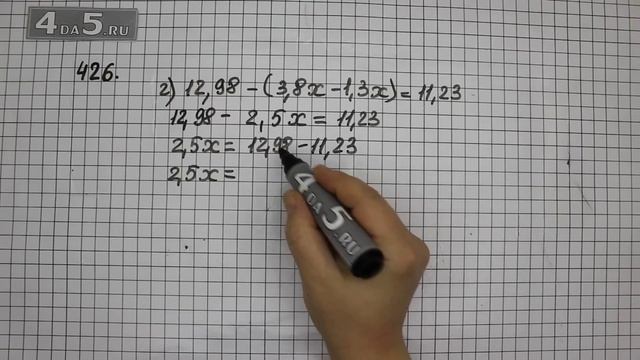 4ДА5.RU
426.
г) 12,98 - (3,8x - 1,3x) = 11,23
12,98 - 2,5x = 11,23
2,5x = 12,98 - 11,23
2,5x =
4ДА5.RU